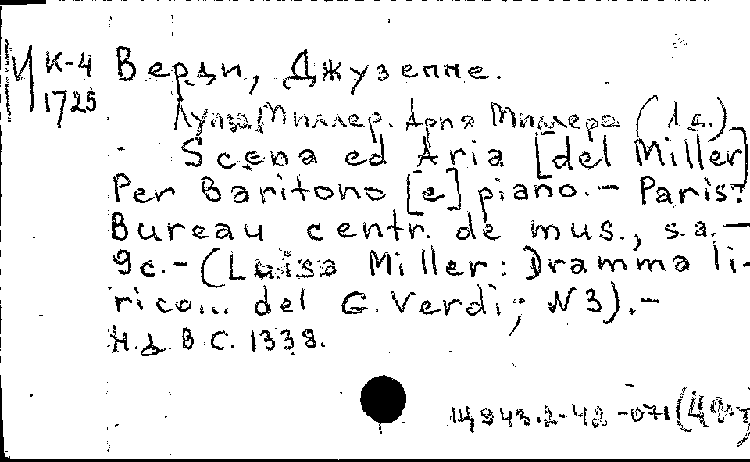 И К-4 Верди, Джузеппе.
1725
Луиза Миллер. Ария Миллера (1 д.)
Scena ed Aria [del Miller]
Per Baritono [e] piano. - Paris:
Bureau centr. de mus., s.a. -
9с. - (Luisa Miller: Dramma li-
rico... del G. Verdi; N3). -
Н.д. В.С. 1338.
Щ943.2-42-071